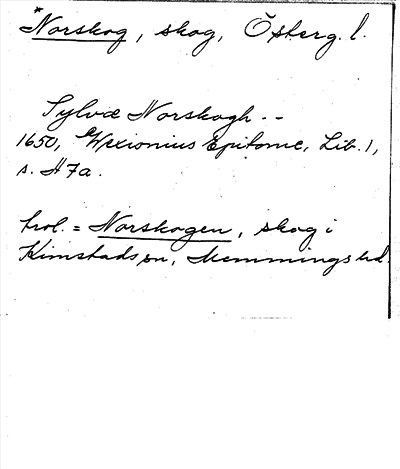 *Norskog, skog, Österg. l.
Sylvæ Norskogh --
1650, Wexionius Epitome, Lib. 1,
s. H 7a.
trol. = Norskogen, skog i
Kimstads sn, Memmings hd.